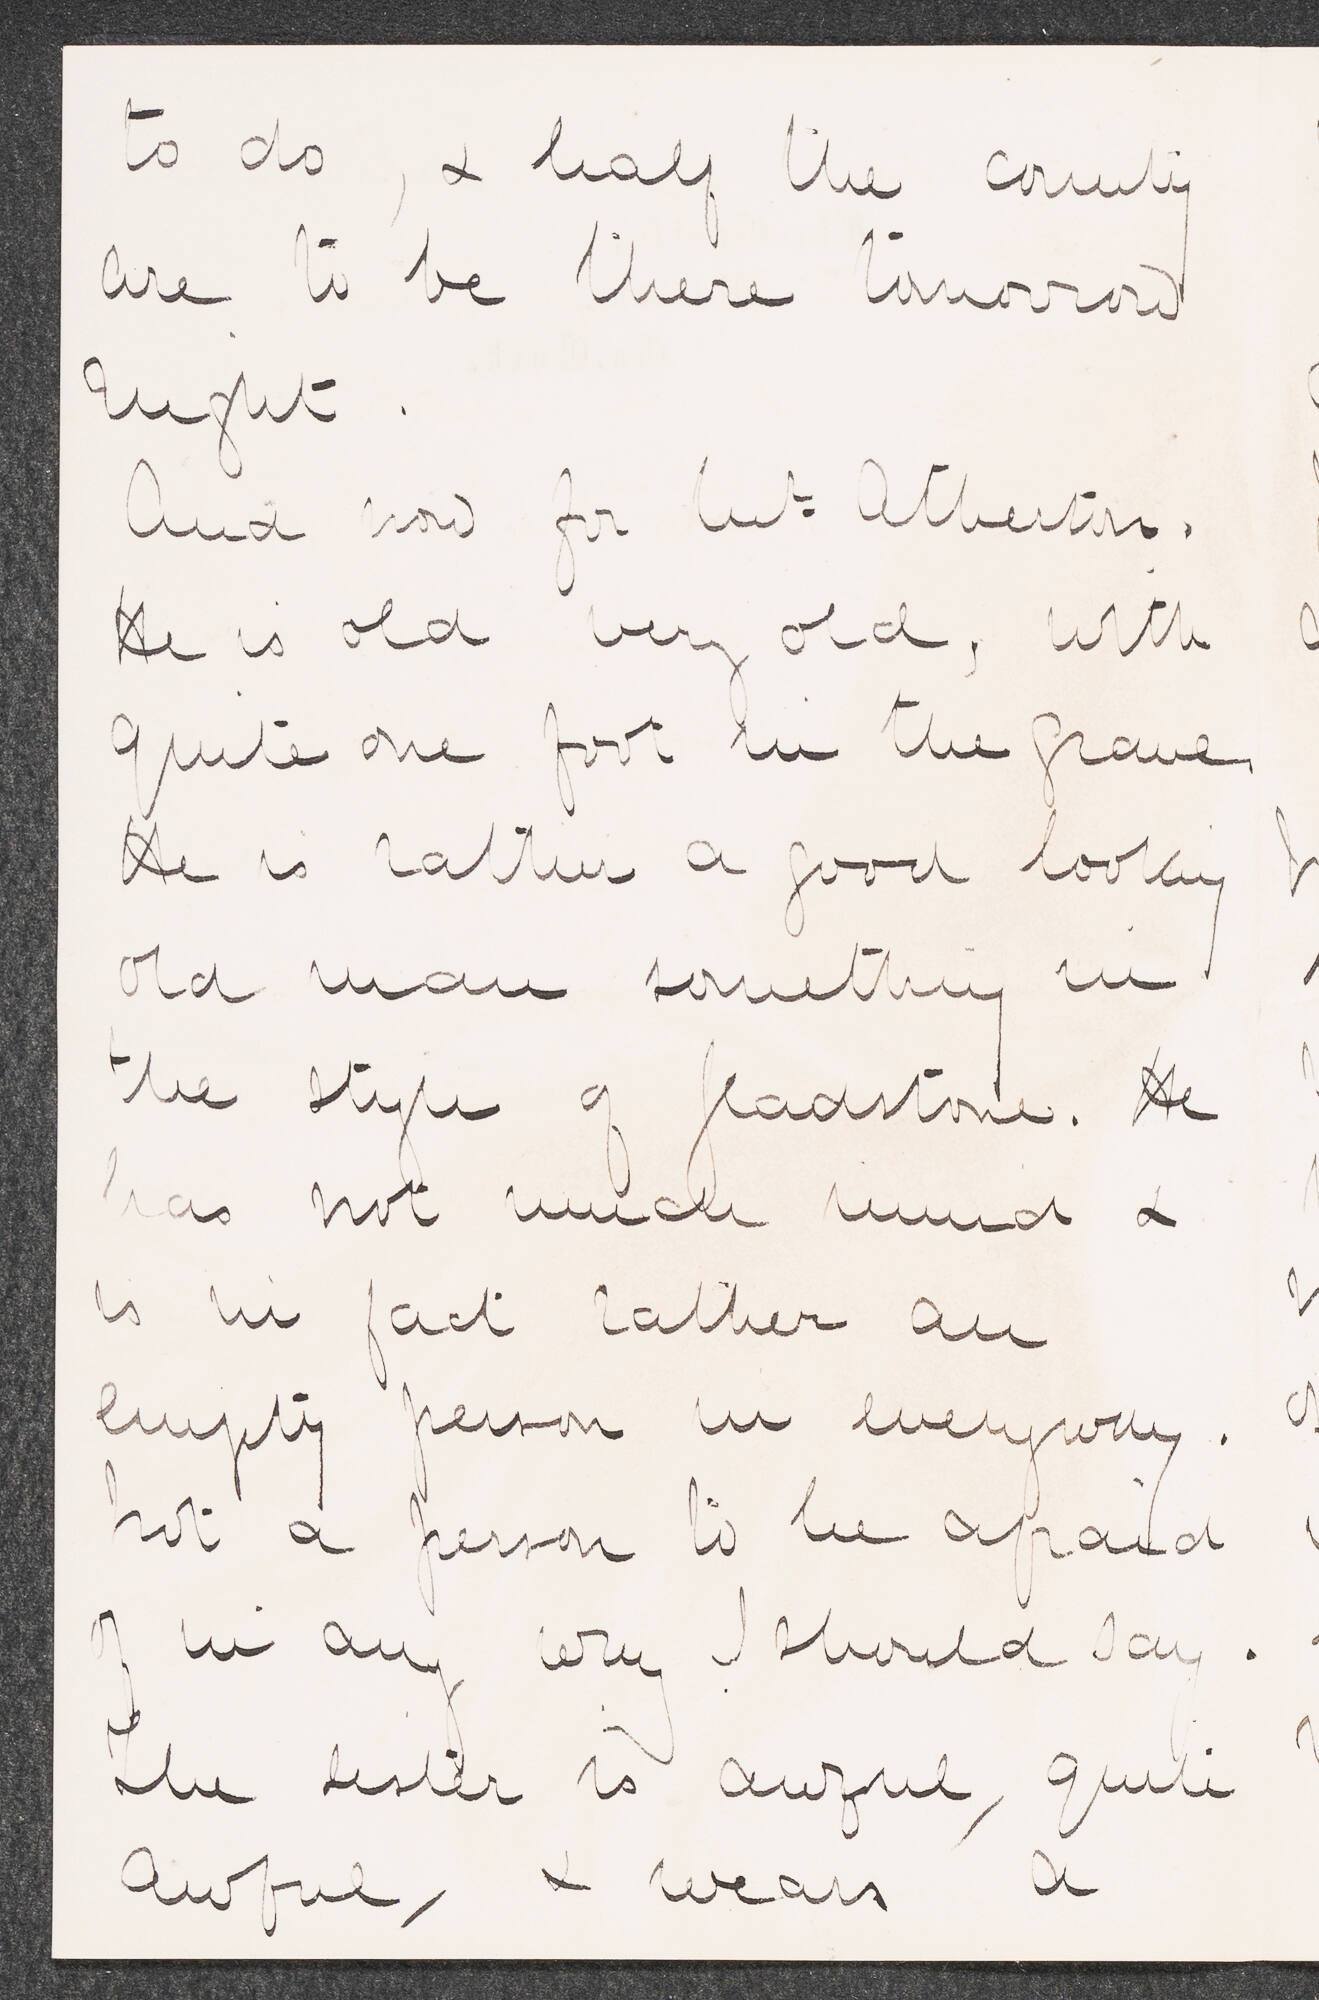 to do, & half the county
are to be there tomorrow
night.
And now for Mr Atherton.
He is old very old, with
quite one foot in the grave.
He is rather a good looking
old man something in
the style of Gladstone. He
has not much mind &
is in fact rather an
empty person in everyway.
Not a person to be afraid
of in any way I should say.
The sister is awful, quite
awful, & wears a